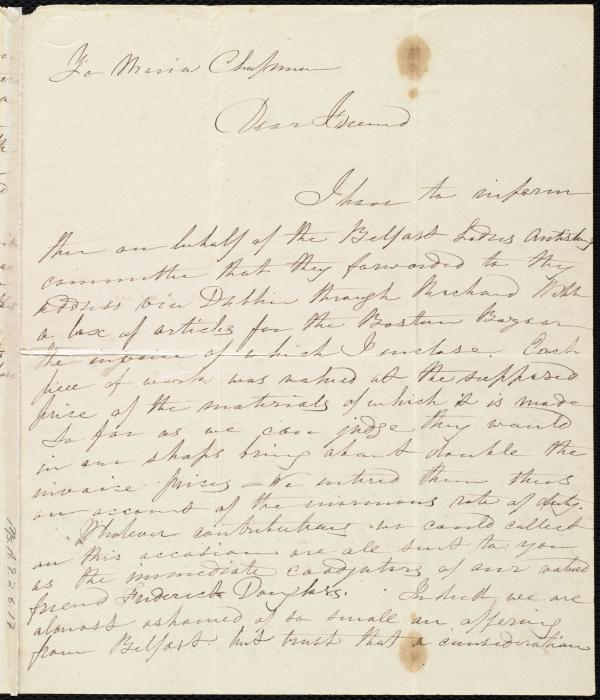 To Maria Chapman
Dear Friend
I have to inform
thee on behalf of the Belfast Ladies Antislavery
committee that they forwarded to thy
address via Dublin through Richard Webb
a box of articles for the Boston Bazaar
the invoice of which I enclose. Each
piece of work was valued at the supposed
price of the materials of which it is made
So far as we can judge they would
in our shops bring about double the
invoice prices – We entered them thus
on account of the enormous rate of duty.
Whatever contributions we could collect
on this occasion are all sent to you
as the immediate coadjutors of our valued
friend Frederick Douglass. Indeed we are
almost ashamed of so small an offering
from Belfast but trust that a consideration